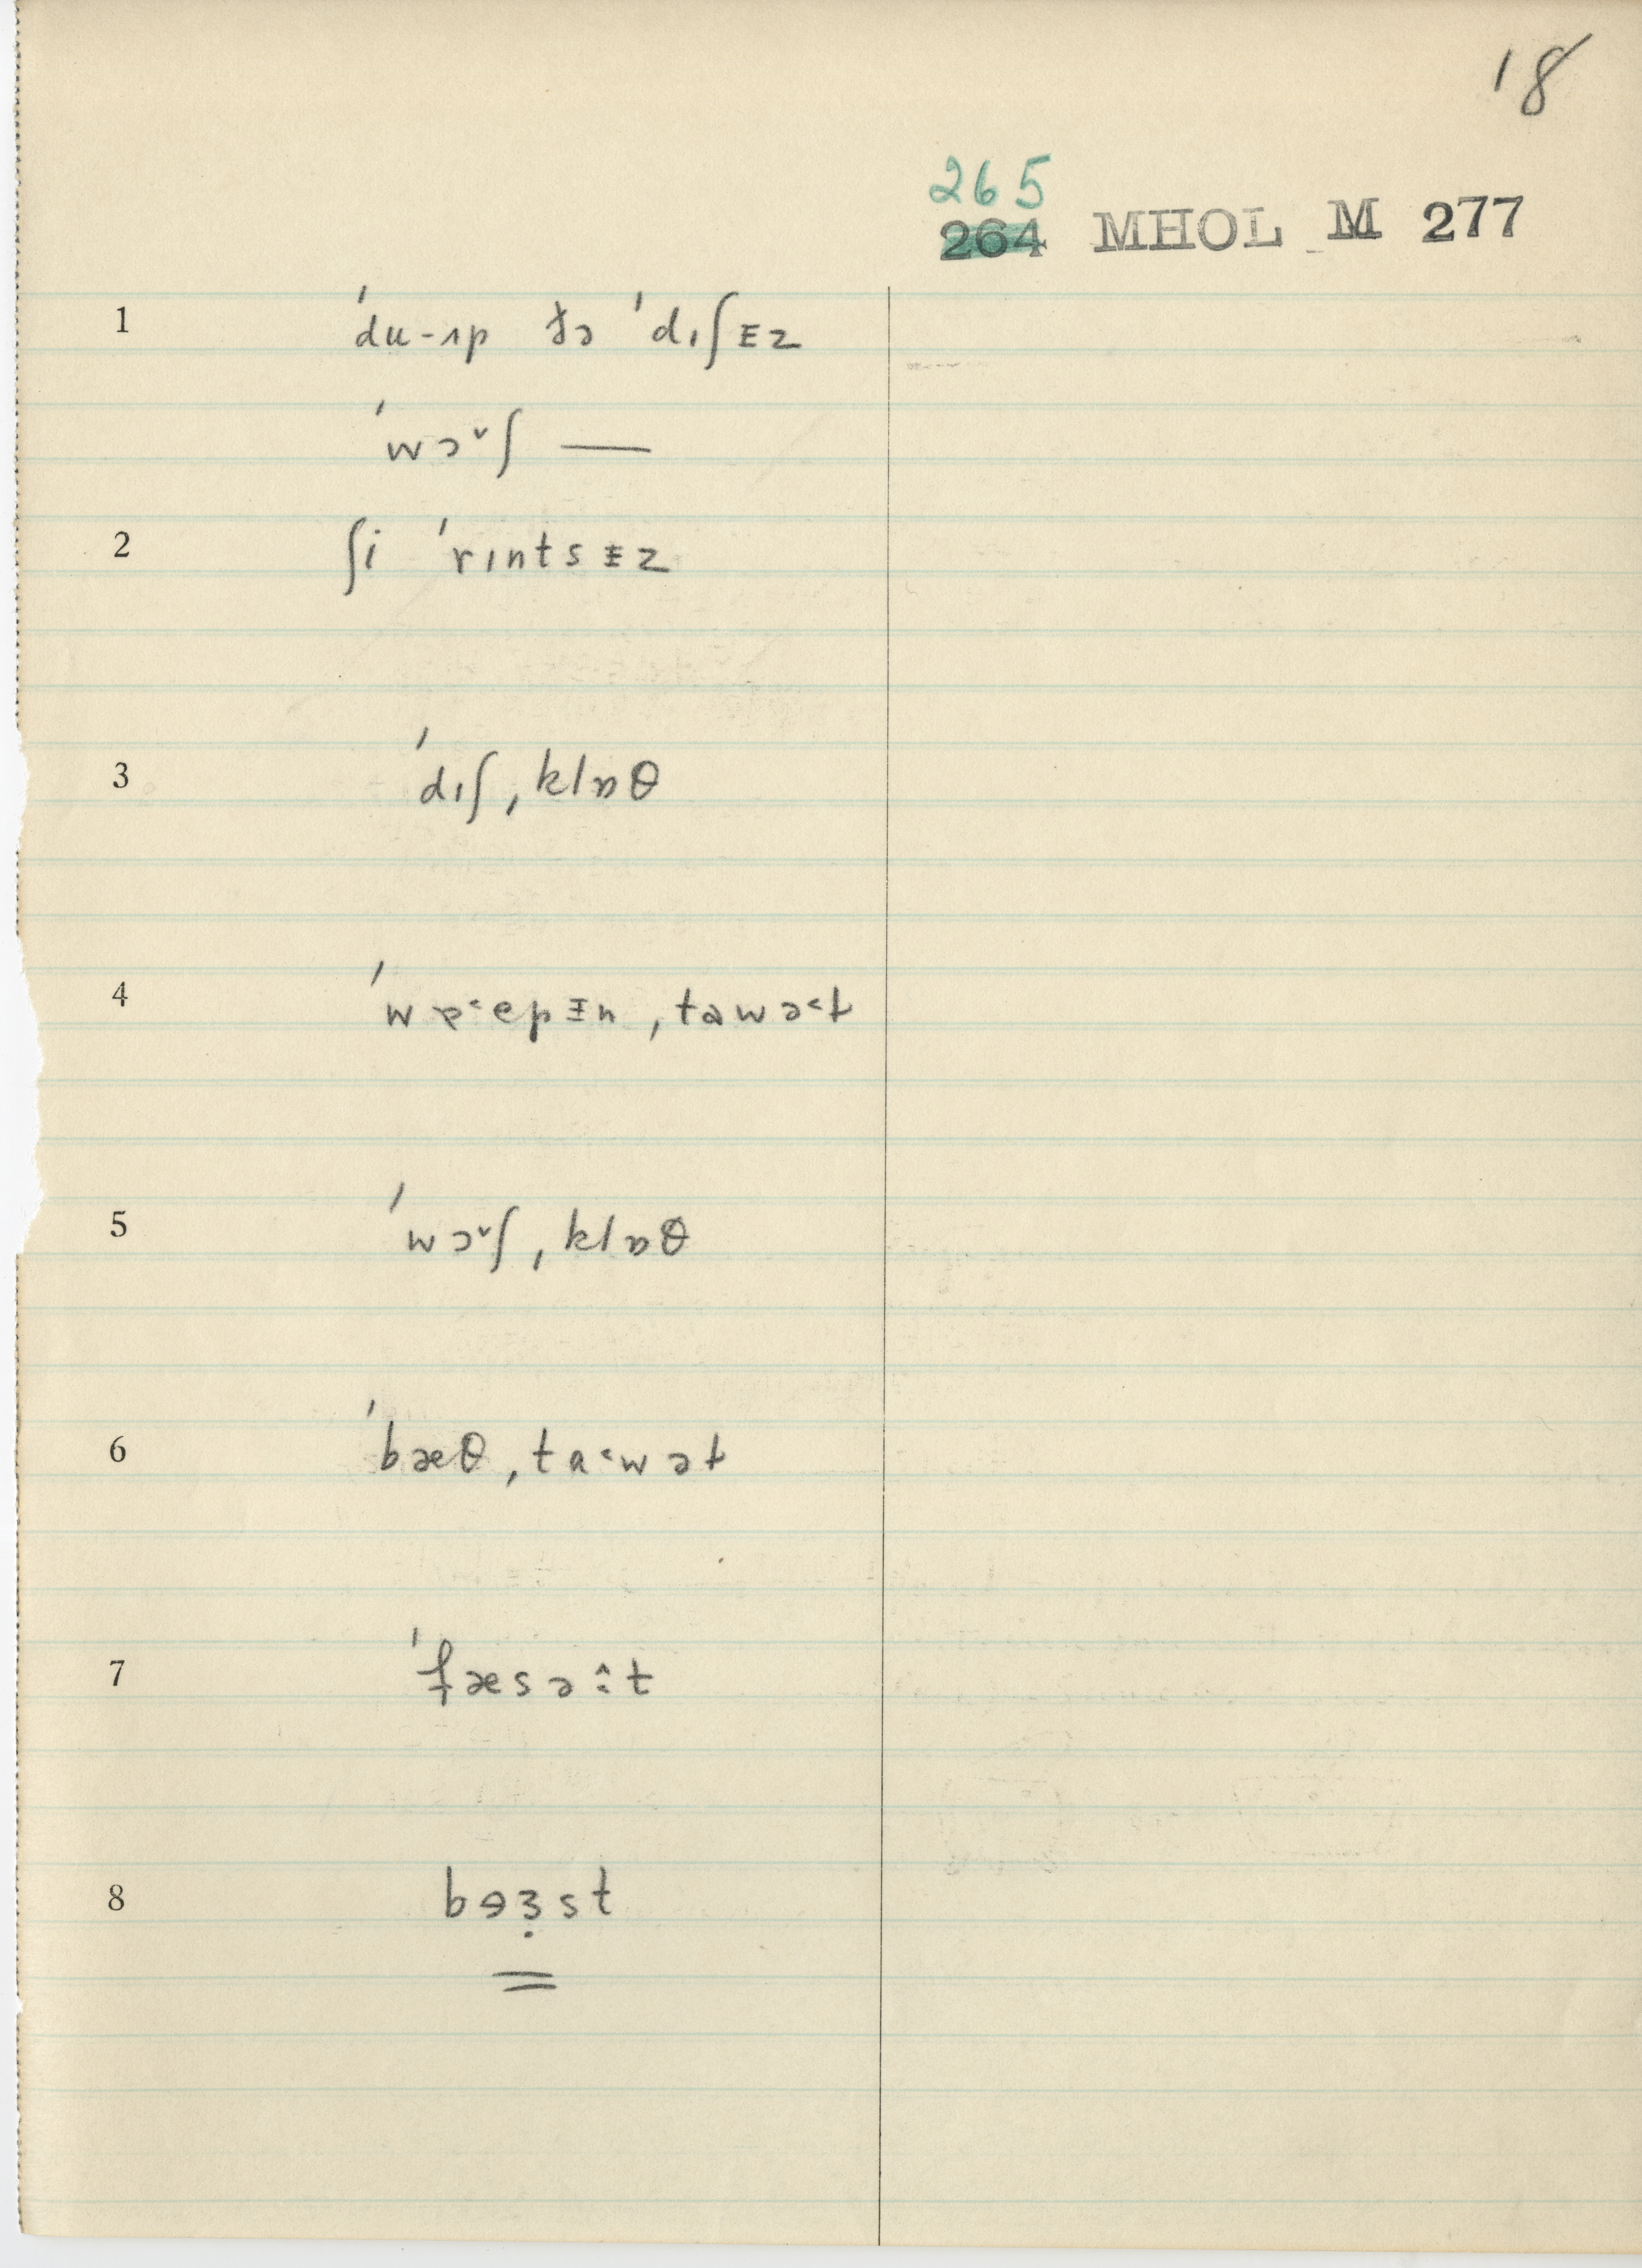 18
265
264 MHOL M 277
1 ˈdu-ʌp ðə ˈdɪʃᵻz
ˈwɔ˅ʃ —
2 ʃi ˈrɪntsᵻz
3 ˈdɪʃˌklɒθ
4 ˌtawə˂ɫ
5 ˈwɔ˅ʃˌklɒθ
6 ˈbæθˌtɑ˂wəɫ
7 ˈfæsə:̂t
8 bɘɜ̣st